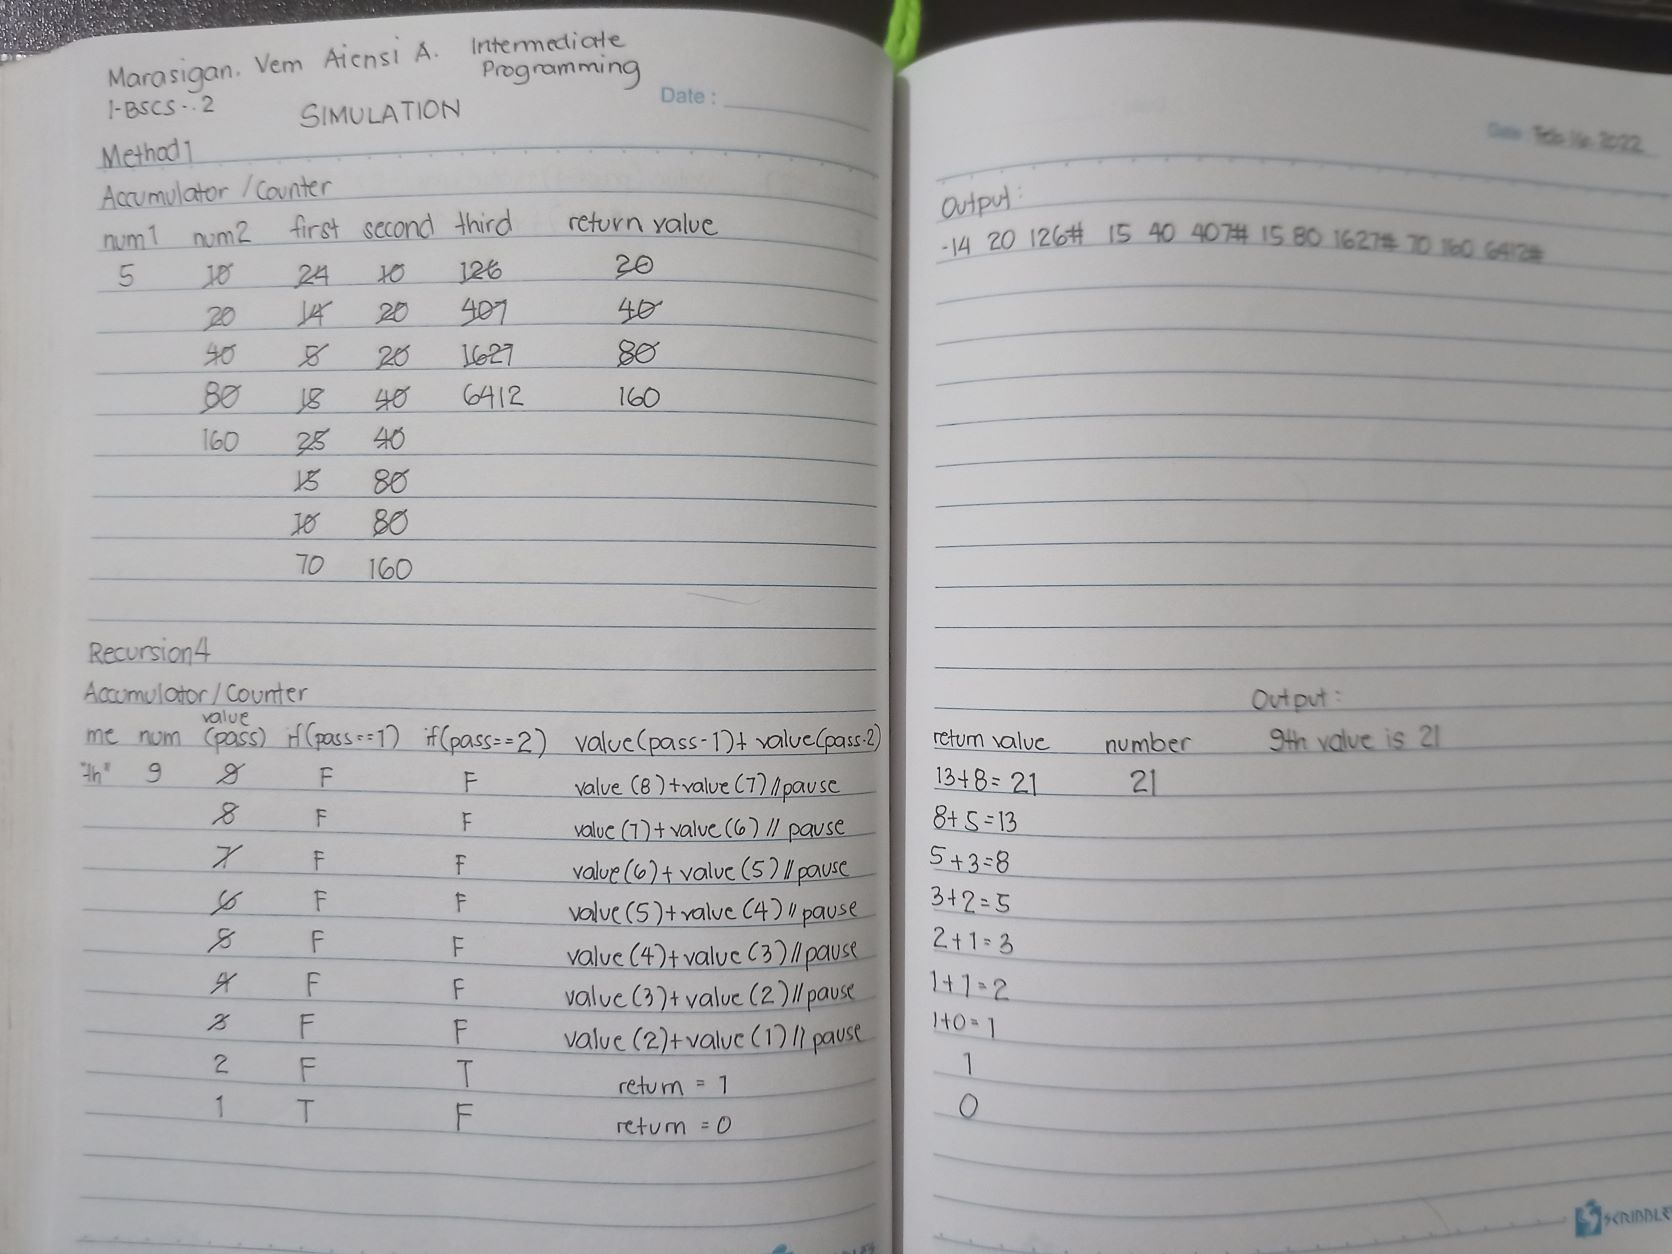 Marasigan. Vem Aiensi A. Intermediate Programming
1-BSCS-.2 SIMULATION Date :
Method1
Accumulator /Counter
num1 num2 first second third return value
5 10 24 10 126 20
20 14 20 407 40
40 5 20 1627 80
80 15 40 6412 160
160 25 40
15 80
10 80
70 160
Recursion4
Accumulator/Counter
me num value (pass) if(pass==1) if(pass==2) value(pass-1)+ value(pass-2)
"th" 9 9 F F value (8)+value(7)//pause
8 F F value(7)+value(6)// pause
7 F F value(6)+ value(5)//pause
6 F F value(5)+value(4)//pause
5 F F value(4)+value(3)//pause
4 F F value(3)+ value(2)//pause
3 F F value(2)+value(1)//pause
2 F T return = 1
1 T F return =0
Date: Feb. 2022
Output:
-14 20 126# 15 40 407# 15 80 1627# 70 160 6412#
Output:
return value number 9th value is 21
13+8=21 21
8+5=13
5+3=8
3+2=5
2+1=3
1+1=2
1+0=1
1
0
SCRIBBLE